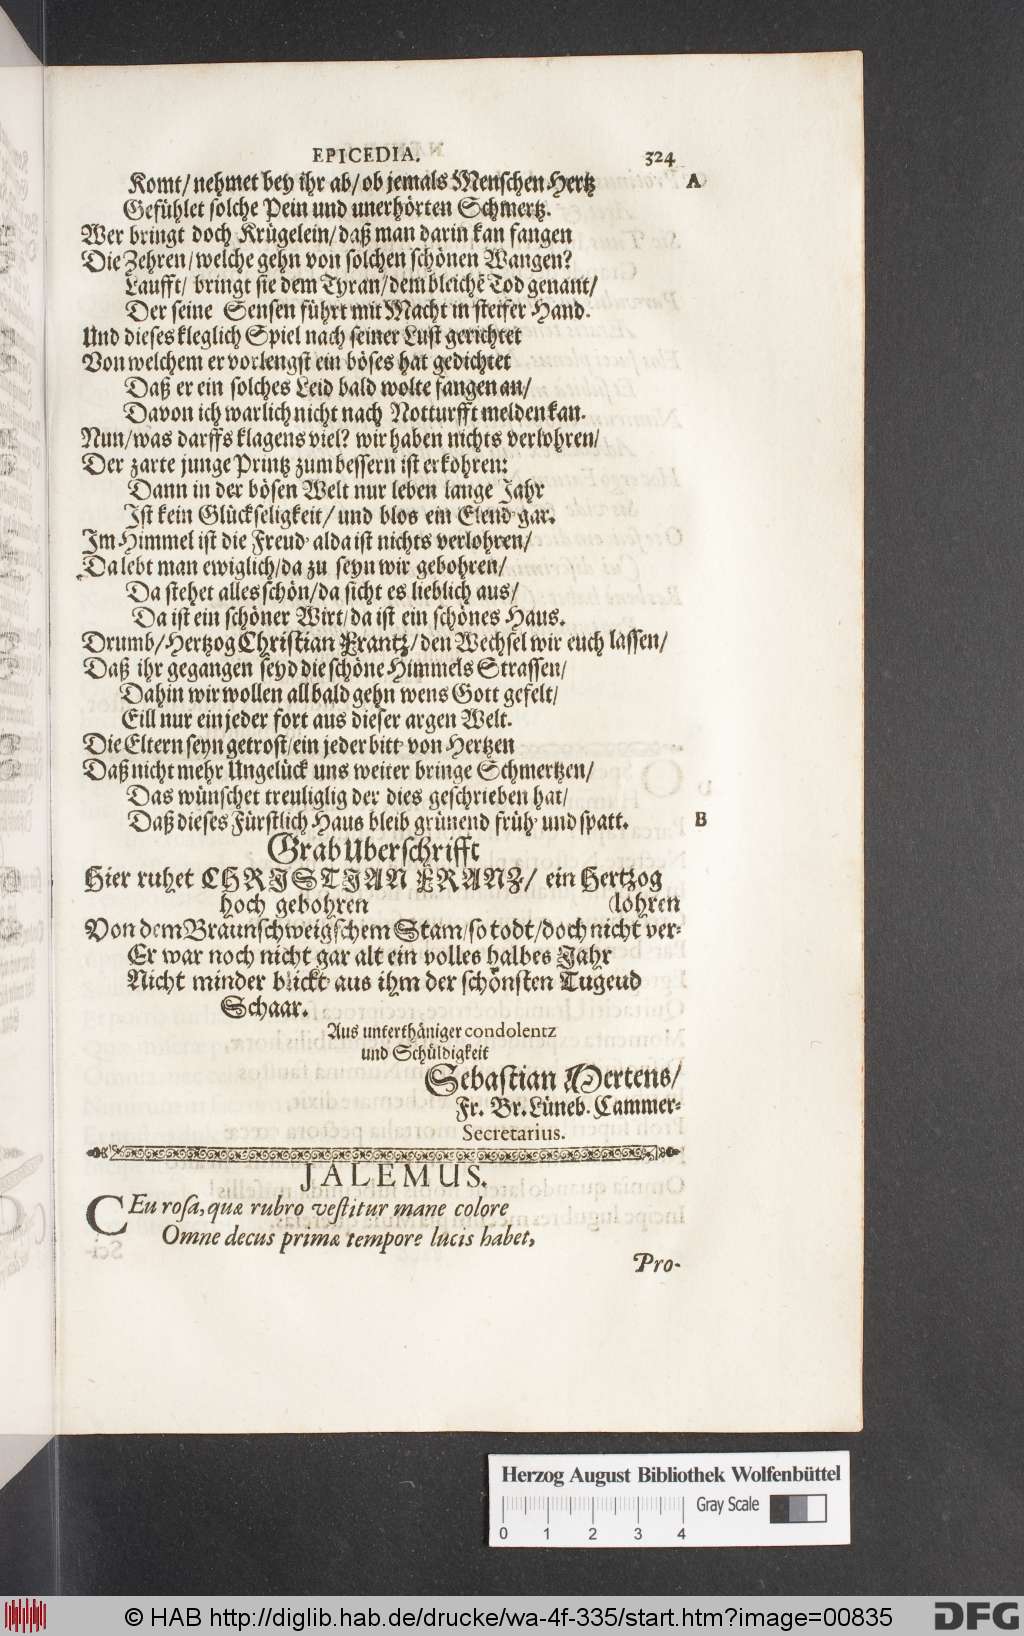 EPICEDIA. 324
Komt/ nehmet bey ihr ab/ ob jemals Menschen Hertz A
Gefühlet solche Pein und unerhörten Schmertz.
Wer bringt doch Krügelein/ daß man darin kan fangen
Die Zehren/ welche gehn von solchen schönen Wangen?
Laufft/ bringt sie dem Tyran/ dem bleichē Tod genant/
Der seine Sensen führt mit Macht in steifer Hand.
Und dieses kleglich Spiel nach seiner Lust gerichtet
Von welchem er vorlengst ein böses hat gedichtet
Daß er ein solches Leid bald wolte fangen an/
Davon ich warlich nicht nach Notturfft melden kan.
Nun/ was darffs klagens viel? wir haben nichts verlohren/
Der zarte junge Printz zum bessern ist erkohren:
Dann in der bösen Welt nur leben lange Jahr
Ist kein Glückseligkeit/ und blos ein Elend gar.
Im Himmel ist die Freud alda ist nichts verlohren/
Da lebt man ewiglich/ da zu seyn wir gebohren/
Da stehet alles schön/ da sicht es lieblich aus/
Da ist ein schöner Wirt/ da ist ein schönes Haus.
Drumb/ Hertzog Christian Frantz/ den Wechsel wir euch lassen/
Daß ihr gegangen seyd die schöne Himmels Strassen/
Dahin wir wollen all bald gehn wens Gott gefelt/
Eill nur ein jeder fort aus dieser argen Welt.
Die Eltern seyn getrost/ ein jeder bitt von Hertzen
Daß nicht mehr Ungelück uns weiter bringe Schmertzen/
Das wünschet treuliglig der dies geschrieben hat/
Daß dieses Fürstlich Haus bleib grünend früh und spatt. B
Grab Uberschrifft
Hier ruhet CHRISTIAN FRANZ/ ein Hertzog
hoch gebohren (lohren
Von dem Braunschweigschem Stam/ so todt/ doch nicht ver-
Er war noch nicht gar alt ein volles halbes Jahr
Nicht minder blickt aus ihm der schönsten Tugend
Schaar.
Aus unterthäniger condolentz
und Schüldigkeit
Sebastian Mertens/
Fr. Br. Lüneb. Cammer-
Secretarius.
JALEMUS.
CEu rosa, quæ rubro vestitur mane colore
Omne decus primæ tempore lucis habet,
Pro-
Herzog August Bibliothek Wolfenbüttel
Gray Scale
0 1 2 3 4
© HAB http://diglib.hab.de/drucke/wa-4f-335/start.htm?image=00835
DFG